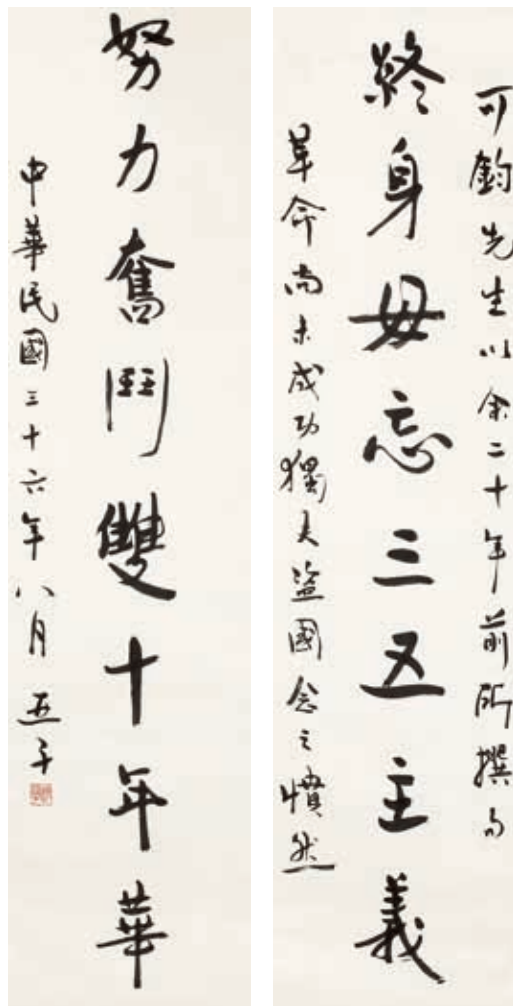 可鈞先生以余二十年前所撰句
終身毋忘三五主義
革命尚未成功獨夫盜國念之憤然
努力奮鬥雙十年華
中華民國三十六年八月 亞子